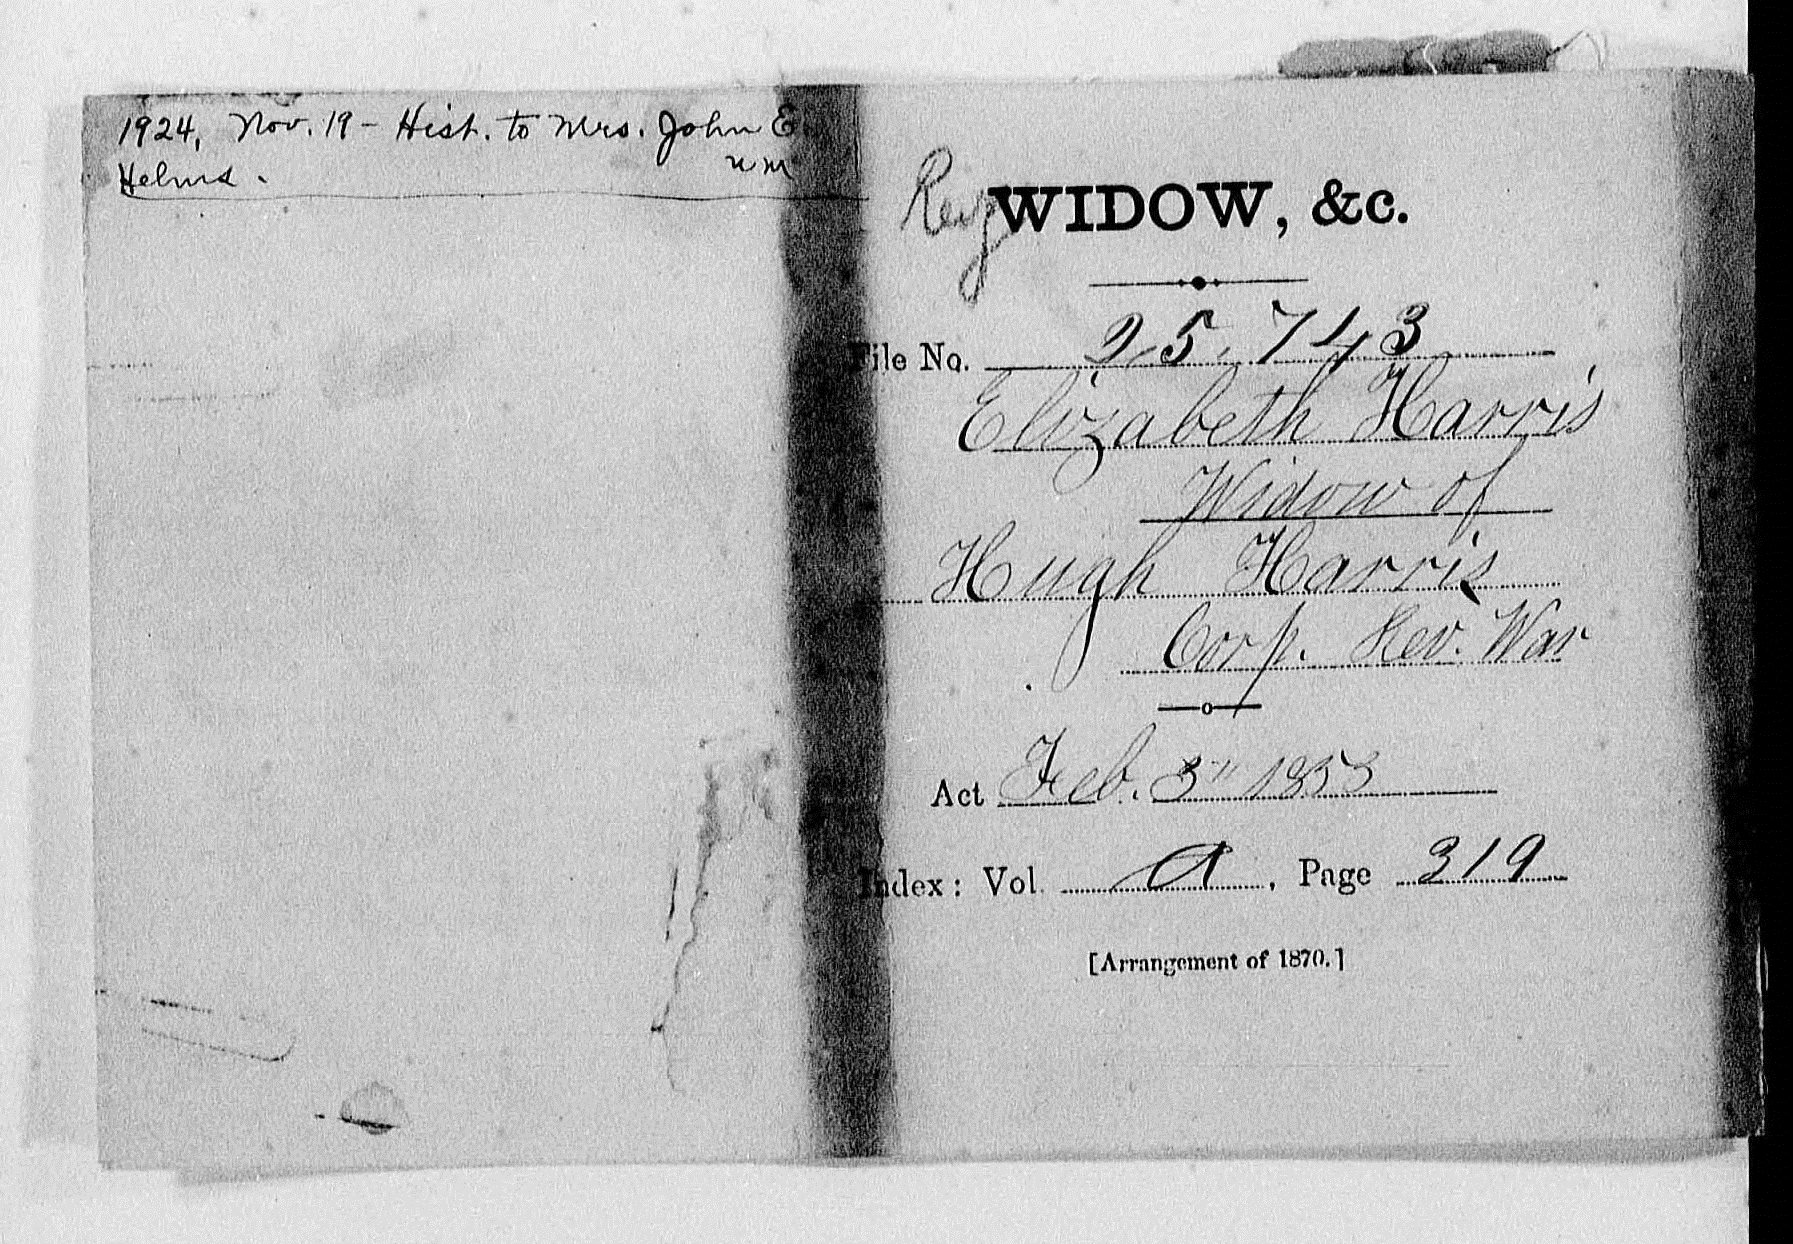 1924, Nov. 19 - Hist. to Mrs. John E.
Helms.
WIDOW, &c.
File No. 25,743
Elizabeth Harris
Widow of
Hugh Harris
Corp. Rev. War
Act Feb. 3" 1853
Index: Vol. A, Page 319
[Arrangement of 1870.]